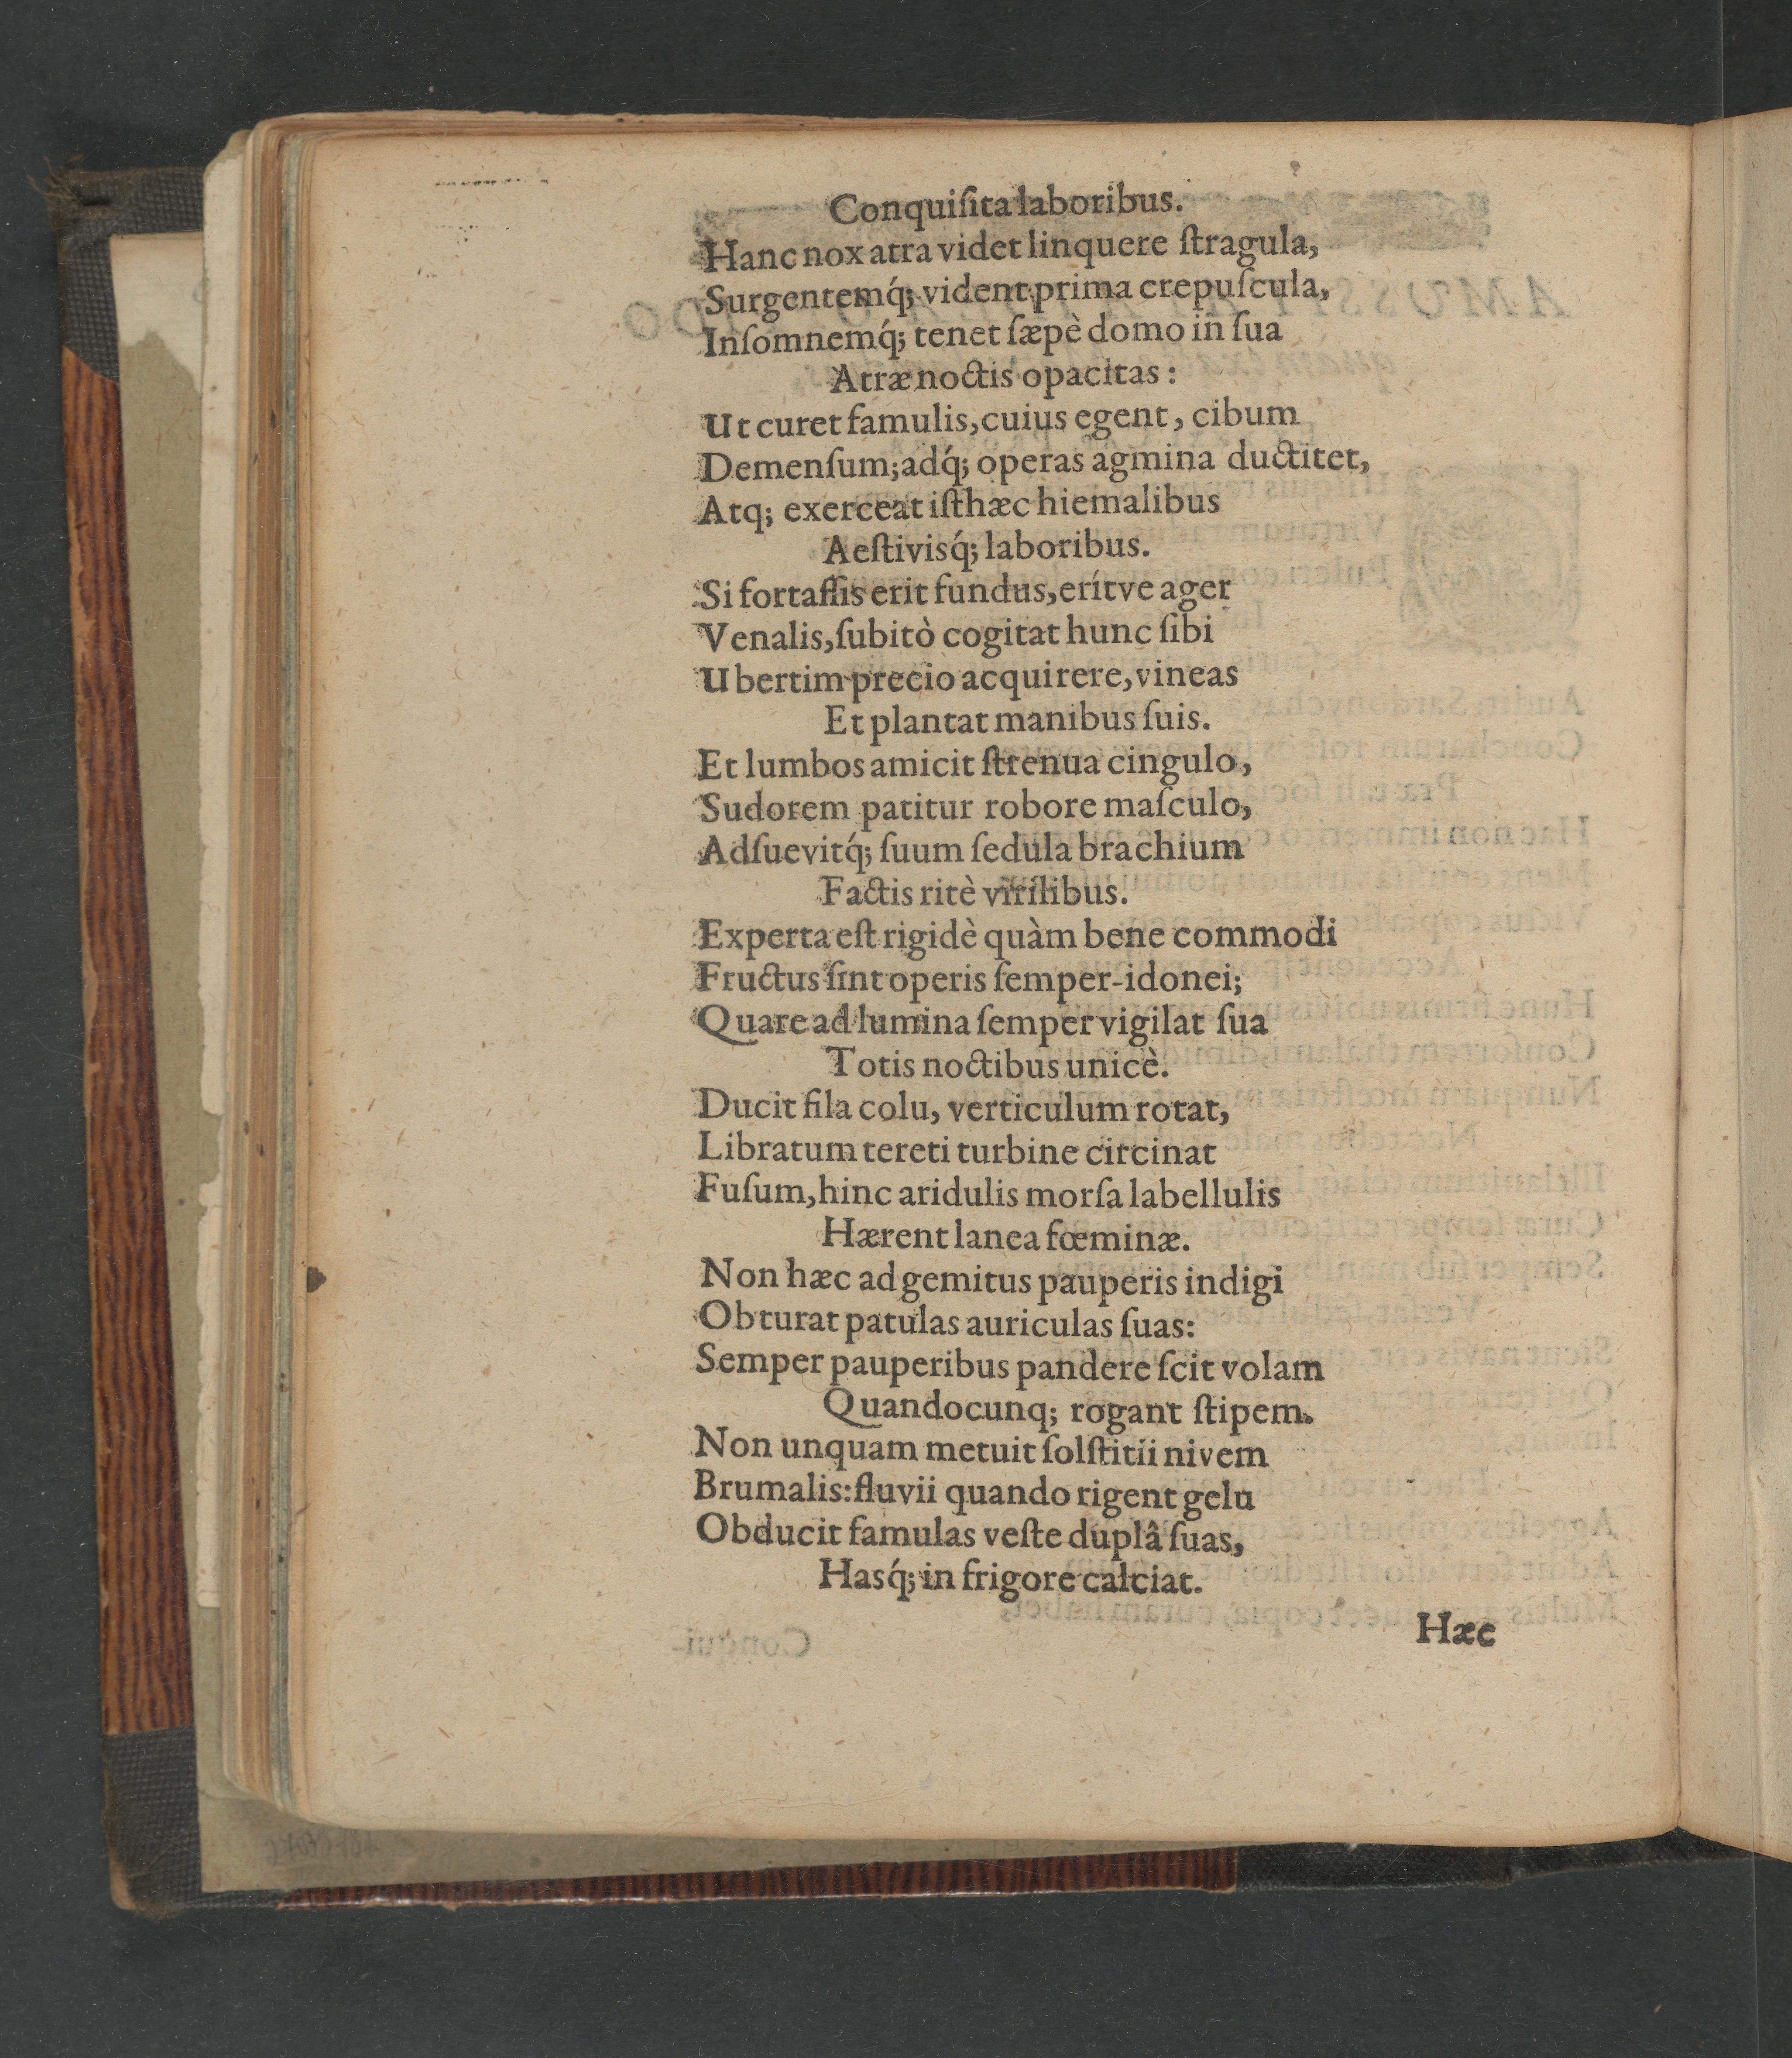 Conquiſita laboribus.
Hanc nox atra videt linquere ſtragula,
Surgentemq́; vident prima crepuſcula,
Inſomnemq́; tenet ſæpè domo in ſua
Atræ noctis opacitas:
Ut curet famulis, cuius egent, cibum
Demenſum; adq́; operas agmina ductitet,
Atq; exerceat iſthæc hiemalibus
Aeſtivisq́; laboribus.
Si fortaſſis erit fundus, erítve ager
Venalis, ſubitò cogitat hunc ſibi
Ubertim precio acquirere, vineas
Et plantat manibus ſuis.
Et lumbos amicit ſtrenua cingulo,
Sudorem patitur robore maſculo,
Adſuevitq́; ſuum ſedula brachium
Factis ritè virílibus.
Experta eſt rigidè quàm bene commodi
Fructus ſint operis ſemper-idonei;
Quare ad lumina ſemper vigilat ſua
Totis noctibus unicè.
Ducit fila colu, verticulum rotat,
Libratum tereti turbine circinat
Fuſum, hinc aridulis morſa labellulis
Hærent lanea fœminæ.
Non hæc ad gemitus pauperis indigi
Obturat patulas auriculas ſuas:
Semper pauperibus pandere ſcit volam
Quandocunq; rogant ſtipem.
Non unquam metuit ſolſtitii nivem
Brumalis: fluvii quando rigent gelu
Obducit famulas veſte duplâ ſuas,
Hasq́; in frigore calciat.
Hæc